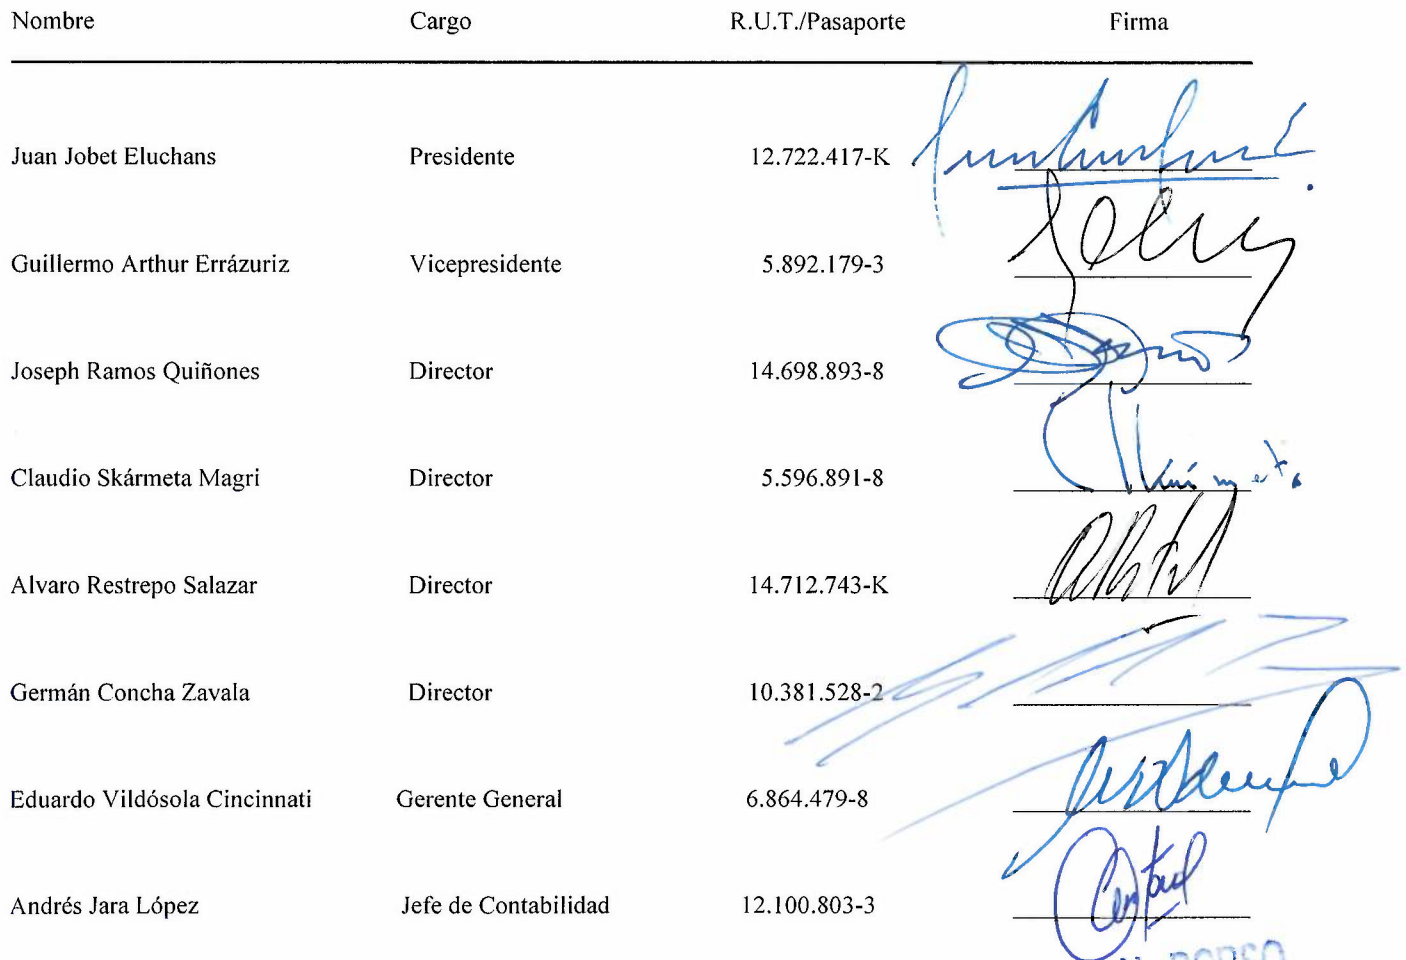 Nombre Cargo R.U.T./Pasaporte Firma
Juan Jobet Eluchans Presidente 12.722.417-K
Guillermo Arthur Errázuriz Vicepresidente 5.892.179-3
Joseph Ramos Quiñones Director 14.698.893-8
Claudio Skármeta Magri Director 5.596.891-8
Alvaro Restrepo Salazar Director 14.712.743-K
Germán Concha Zavala Director 10.381.528-2
Eduardo Vildósola Cincinnati Gerente General 6.864.479-8
Andrés Jara López Jefe de Contabilidad 12.100.803-3